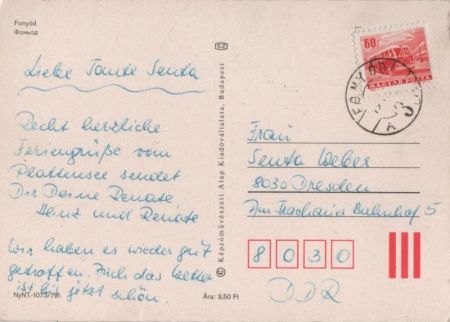 Fonyód
Фоньод
Liebe Tante Senta
Recht herzliche
Feriengrüße vom
Plattensee sendet
Dir Deine Renate,
Heinz und Renate
Wir haben es wieder gut
getroffen. Auch das Wetter
ist bis jetzt schön.
NyNT.-1073/791.
Ára: 3,50 Ft
Képzőművészeti Alap Kiadóvállalata, Budapest
60
MAGYAR POSTA
FONYÓD
A
Frau
Senta Weber
8030 Dresden
Am Trachauer Bahnhof 5
8 0 3 0
DDR